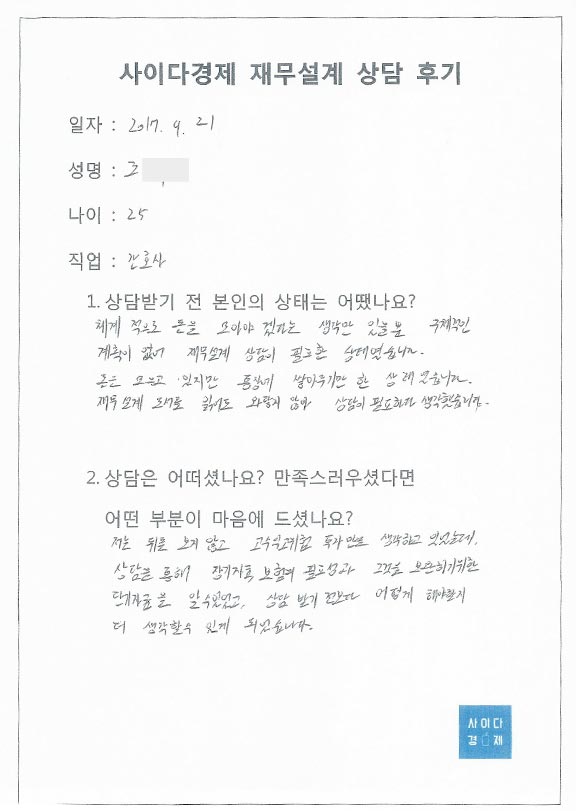 사이다경제 재무설계 상담 후기
일자 : 2017. 9. 21
성명 : 조
나이 : 25
직업 : 간호사
1. 상담받기 전 본인의 상태는 어땠나요?
체계 적으로 돈을 모아야 겠다는 생각만 있을뿐 구체적인
계획이 없어 재무설계 상담이 필요한 상태였습니다.
돈은 모으고 있지만 통장에 쌓아두기만 한 상태 였습니다.
재무 설계 도서를 읽어도 와닿지 않아 상담이 필요하다 생각했습니다.
2. 상담은 어떠셨나요? 만족스러우셨다면
어떤 부분이 마음에 드셨나요?
저는 뒤를 보지 않고 고수익고위험 투자만을 생각하고 있었는데,
상담을 통해 장기자금, 보험의 필요성과 그것을 보완하기위한
단기자금을 알 수있었고, 상담 받기 전보다 어떻게 해야할지
더 생각할수 있게 되었습니다.
사이다
경제